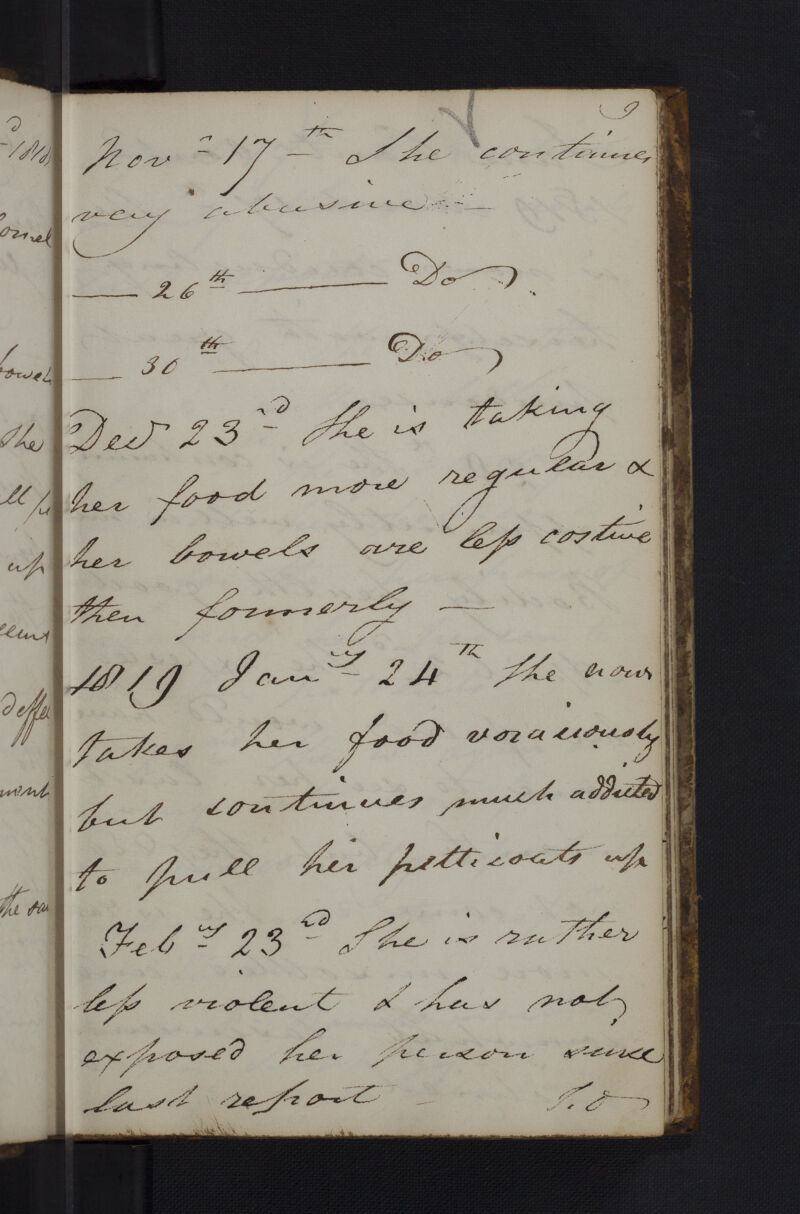 9
Novr 17th She continues
very abusive —
— 26th — Do
— 30th — Do
Decr 23rd She is taking
her food more regular &
her bowels are less costive
then formerly —
1819 Jany 24th She now
takes her food voraciously
but continues much addicted
to pull her petticoats up
Feby 23rd She is rather
less violent & has not
exposed her person since
last report — T.O